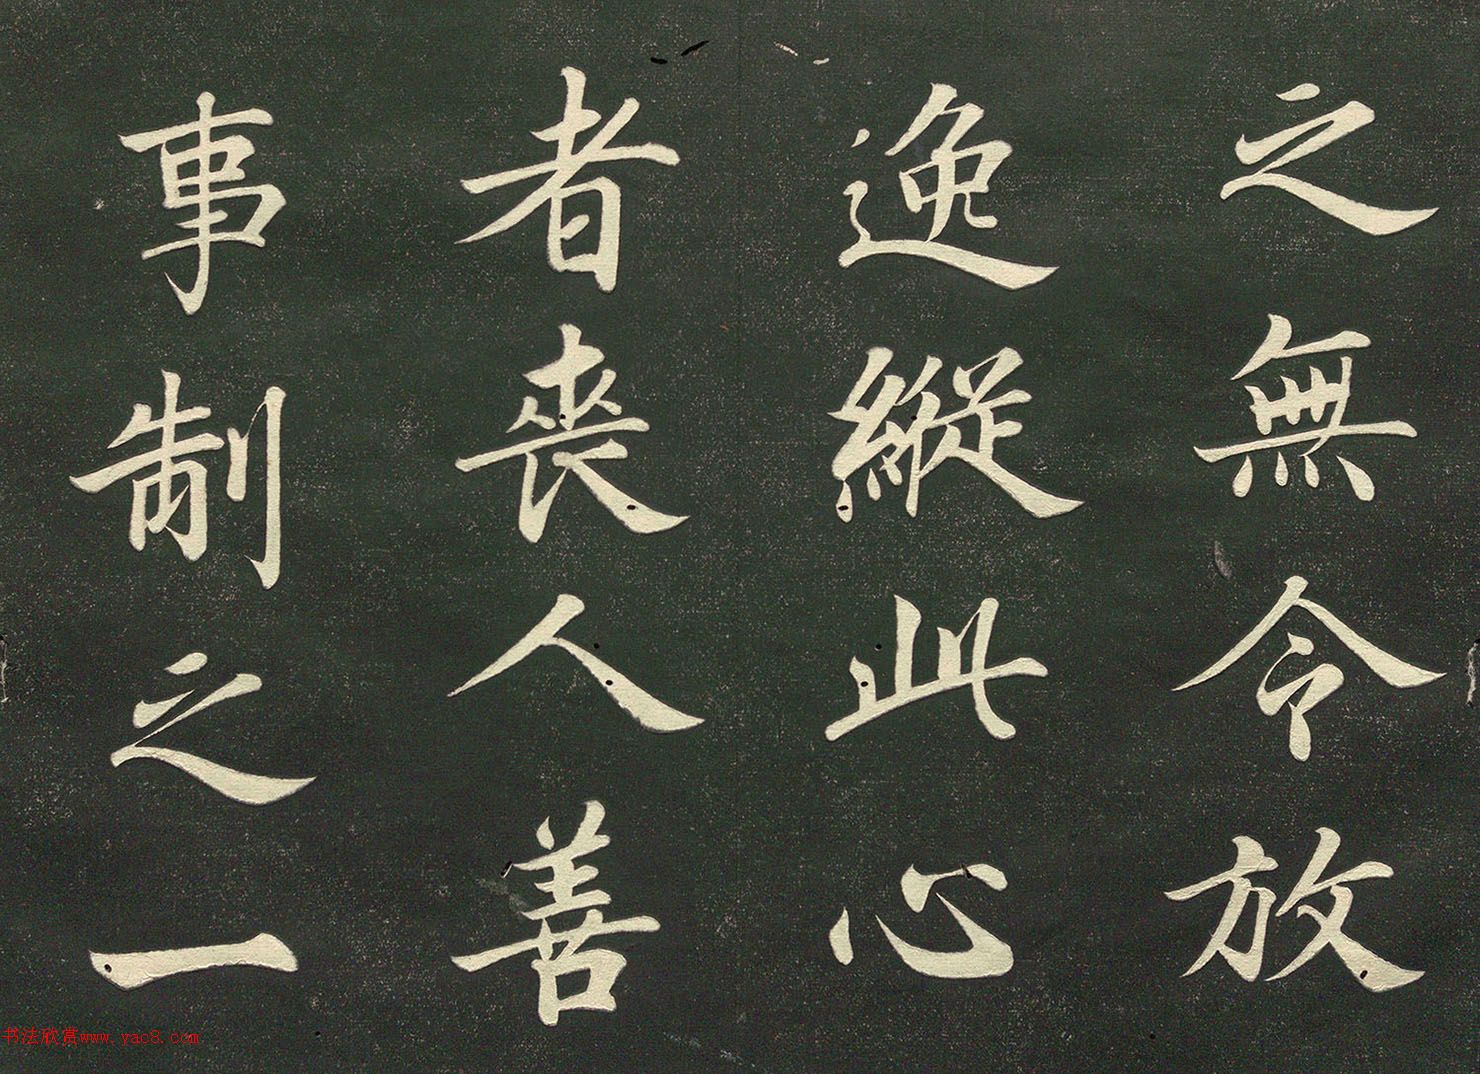 之無令放
逸縱此心
者喪人善
事制之一
书法欣赏www.yac8.com